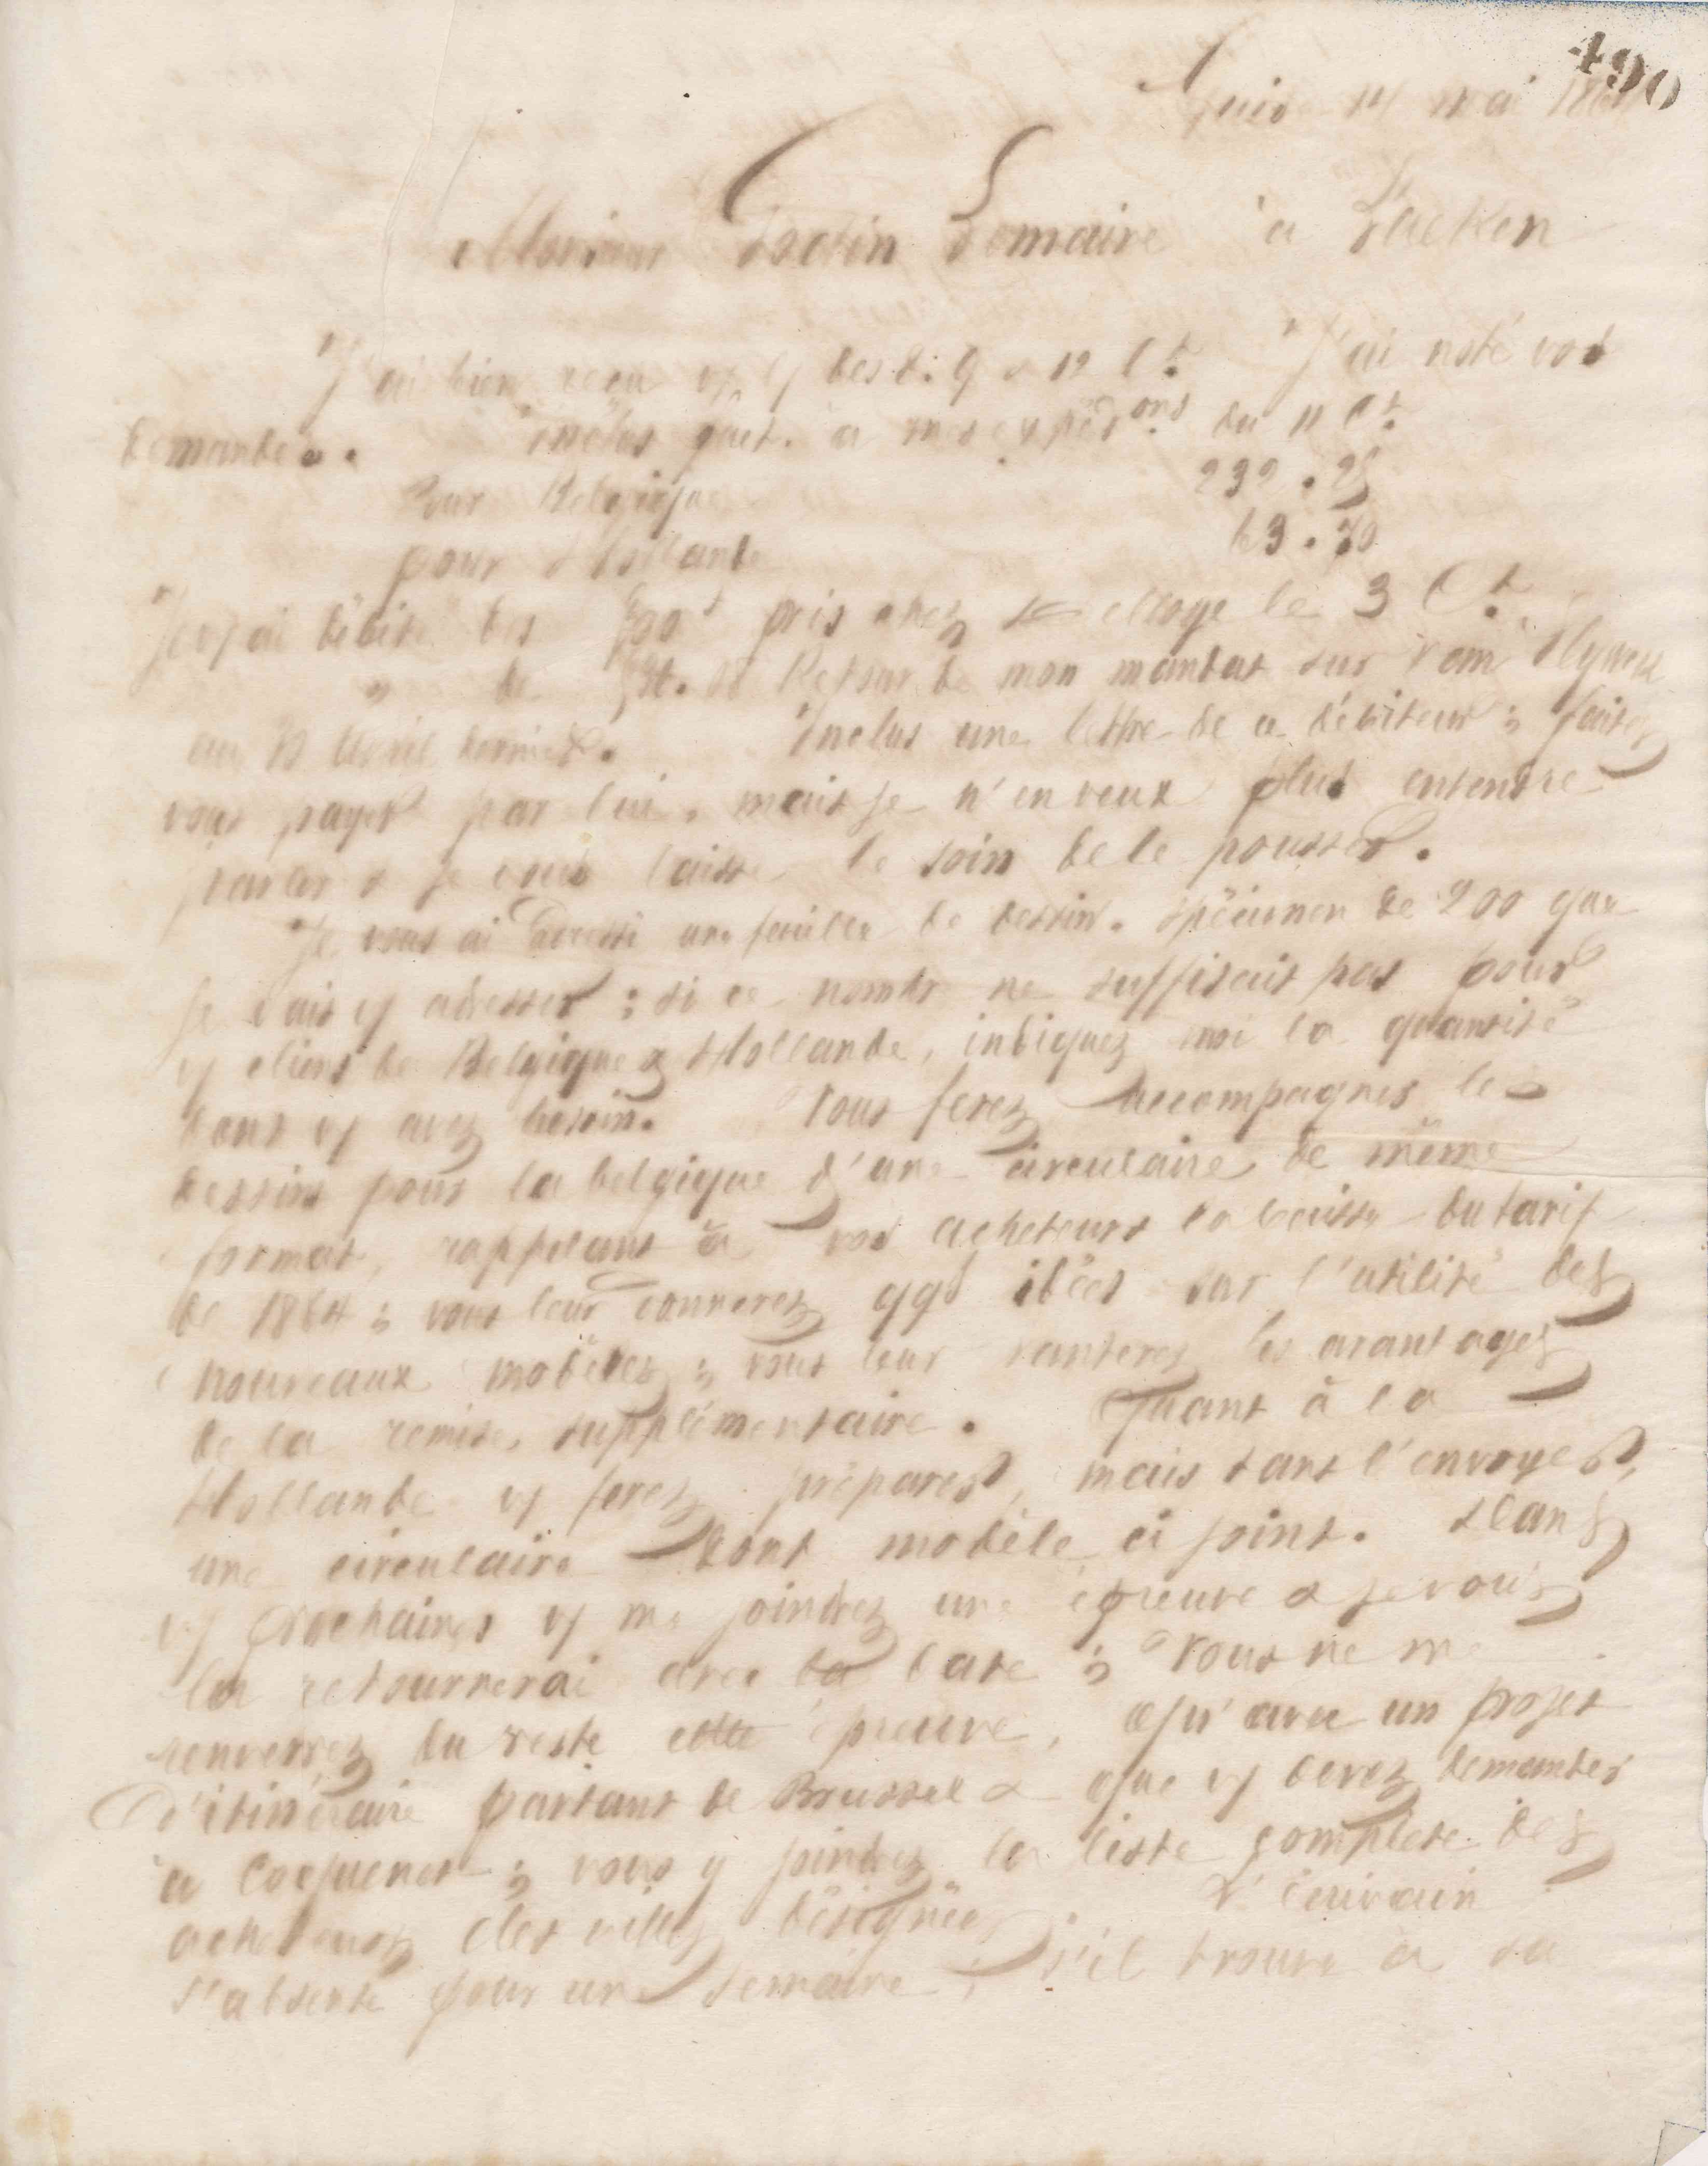 490
Guise 14 mai 186
Monsieur Lemaire à Laeken
J'ai bien reçu vs des d. 9 & 12 Ct. J'ai noté vos
demandes. Inclus fact. à mes expédons du 11 Ct.
Pour Belgique 232.25
pour Hollande 63.70
Je vs ai débité des pris chez le 3 Ct.
" de Retour de mon mandat sur
au avril dernier. Inclus une lettre de ce débiteur ; faites
vous payer par lui, mais je n'en veux plus entendre
parler & je vous laisse le soin de le pousser.
Je vous ai adressé une feuille de dessin. Spécimen de 200 que
je vais vs adresser ; si ce nombre ne suffisait pas pour
vs cliens de Belgique & Hollande, indiquez moi la quantité
dont vs avez besoin. Vous ferez accompagner les
dessins pour la belgique d'une circulaire de même
format, rappelant à vos acheteurs la baisse du tarif
de 1864 ; vous leur donnerez qqs idées sur l'utilité des
nouveaux modèles ; vous leur vanterez les avantages
de la remise supplémentaire. Quant à la
Hollande vs ferez préparer, mais sans l'envoyer,
une circulaire dont modèle ci joint. Dans
vs prochaines vs me joindrez une épreuve & je vous
la retournerai avec la date ; vous ne me
renverrez du reste cette épreuve, qu'avec un projet
d'itinéraire partant de Brussel & que vs devez demander
à Coquenet ; vous y joindrez la liste complète des
acheteurs des villes désignées. L'écrivain
s'absente pour une semaine ; s'il trouve à sa